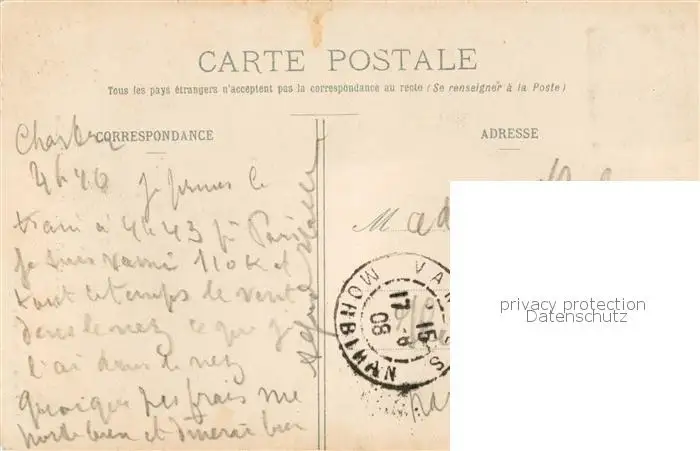 CARTE POSTALE
Tous les pays étrangers n'acceptent pas la correspondance au recto (Se renseigner à la Poste)
CORRESPONDANCE
ADRESSE
4h46 je prends le
train à 4h43 pr Paris
Je suis 110 K et
tout le temps le vent
dans le nez ce que j
l'ai dans le nez
Quoique pas frais me
porte bien et dinerai bien
Mad
VAN
17
15
8
08
MORBIHAN
privacy protection
Datenschutz